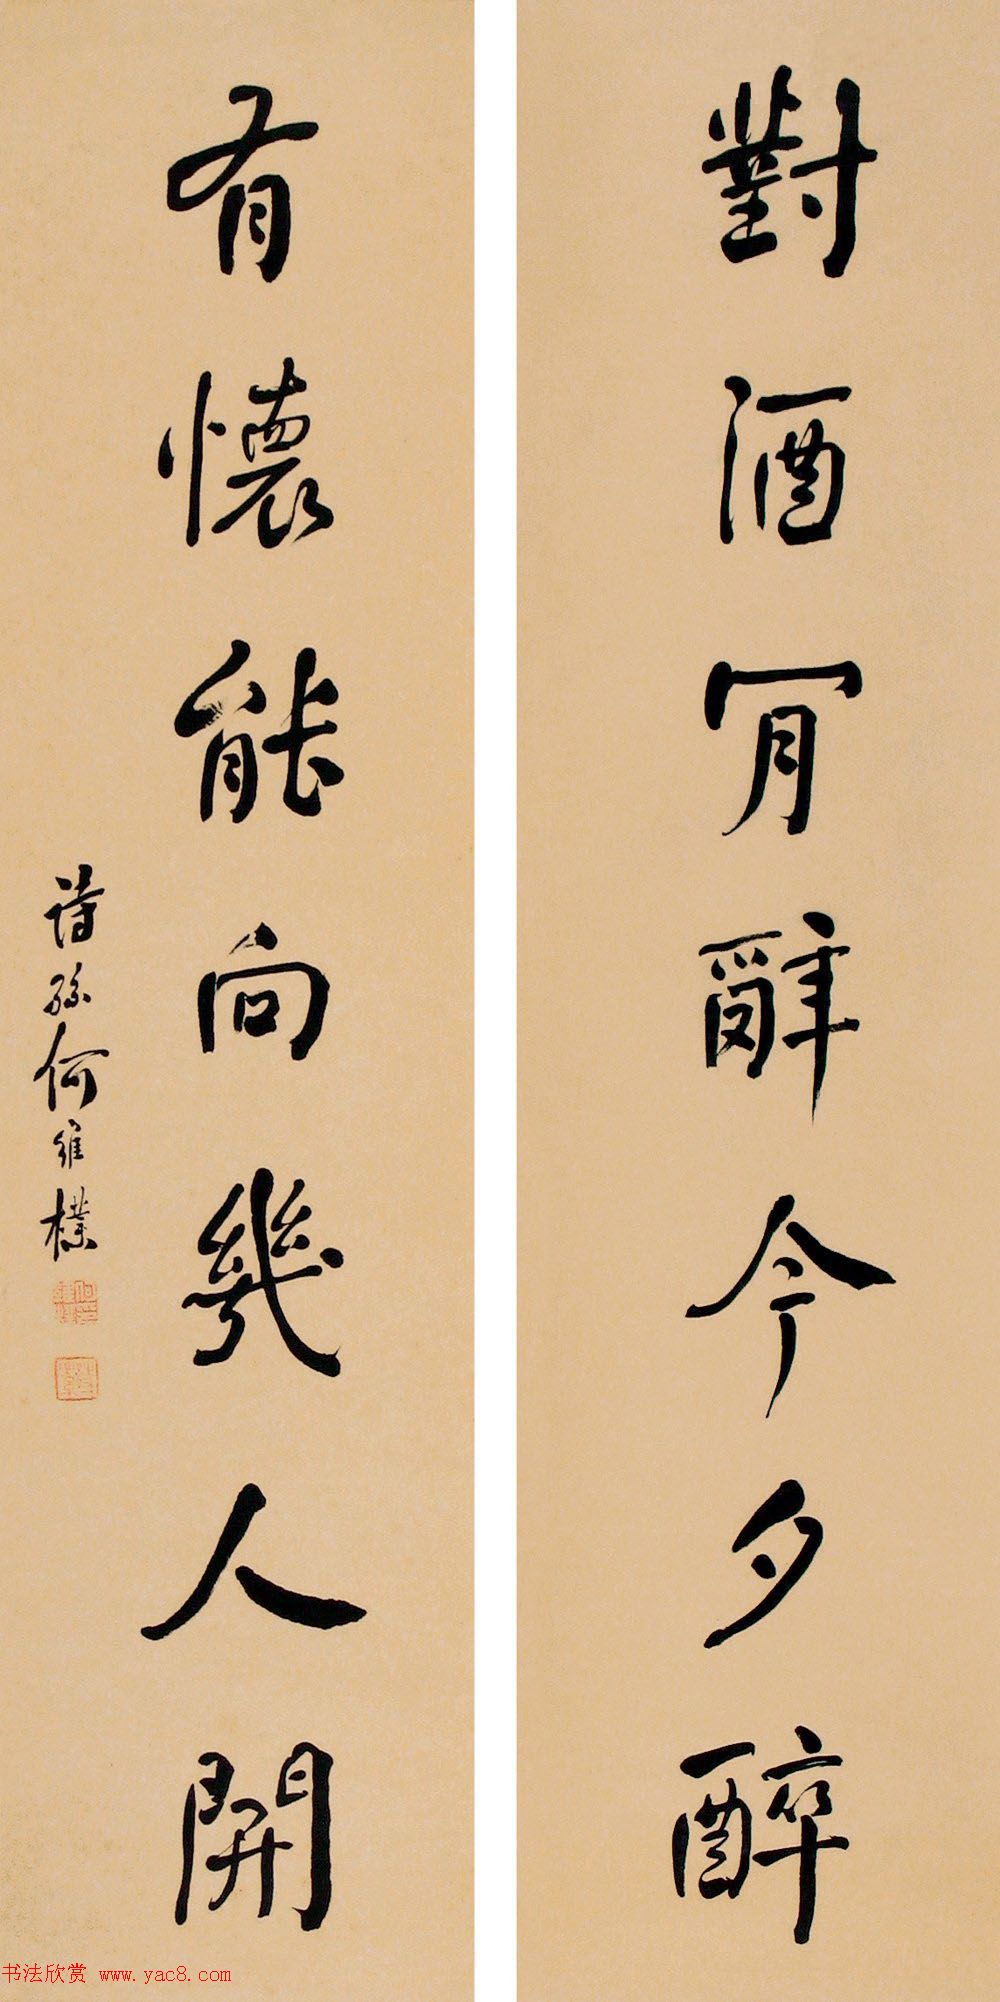 對酒肎辭今夕醉
有懷能向幾人開
詩孫何維樸
书法欣赏 www.yac8.com